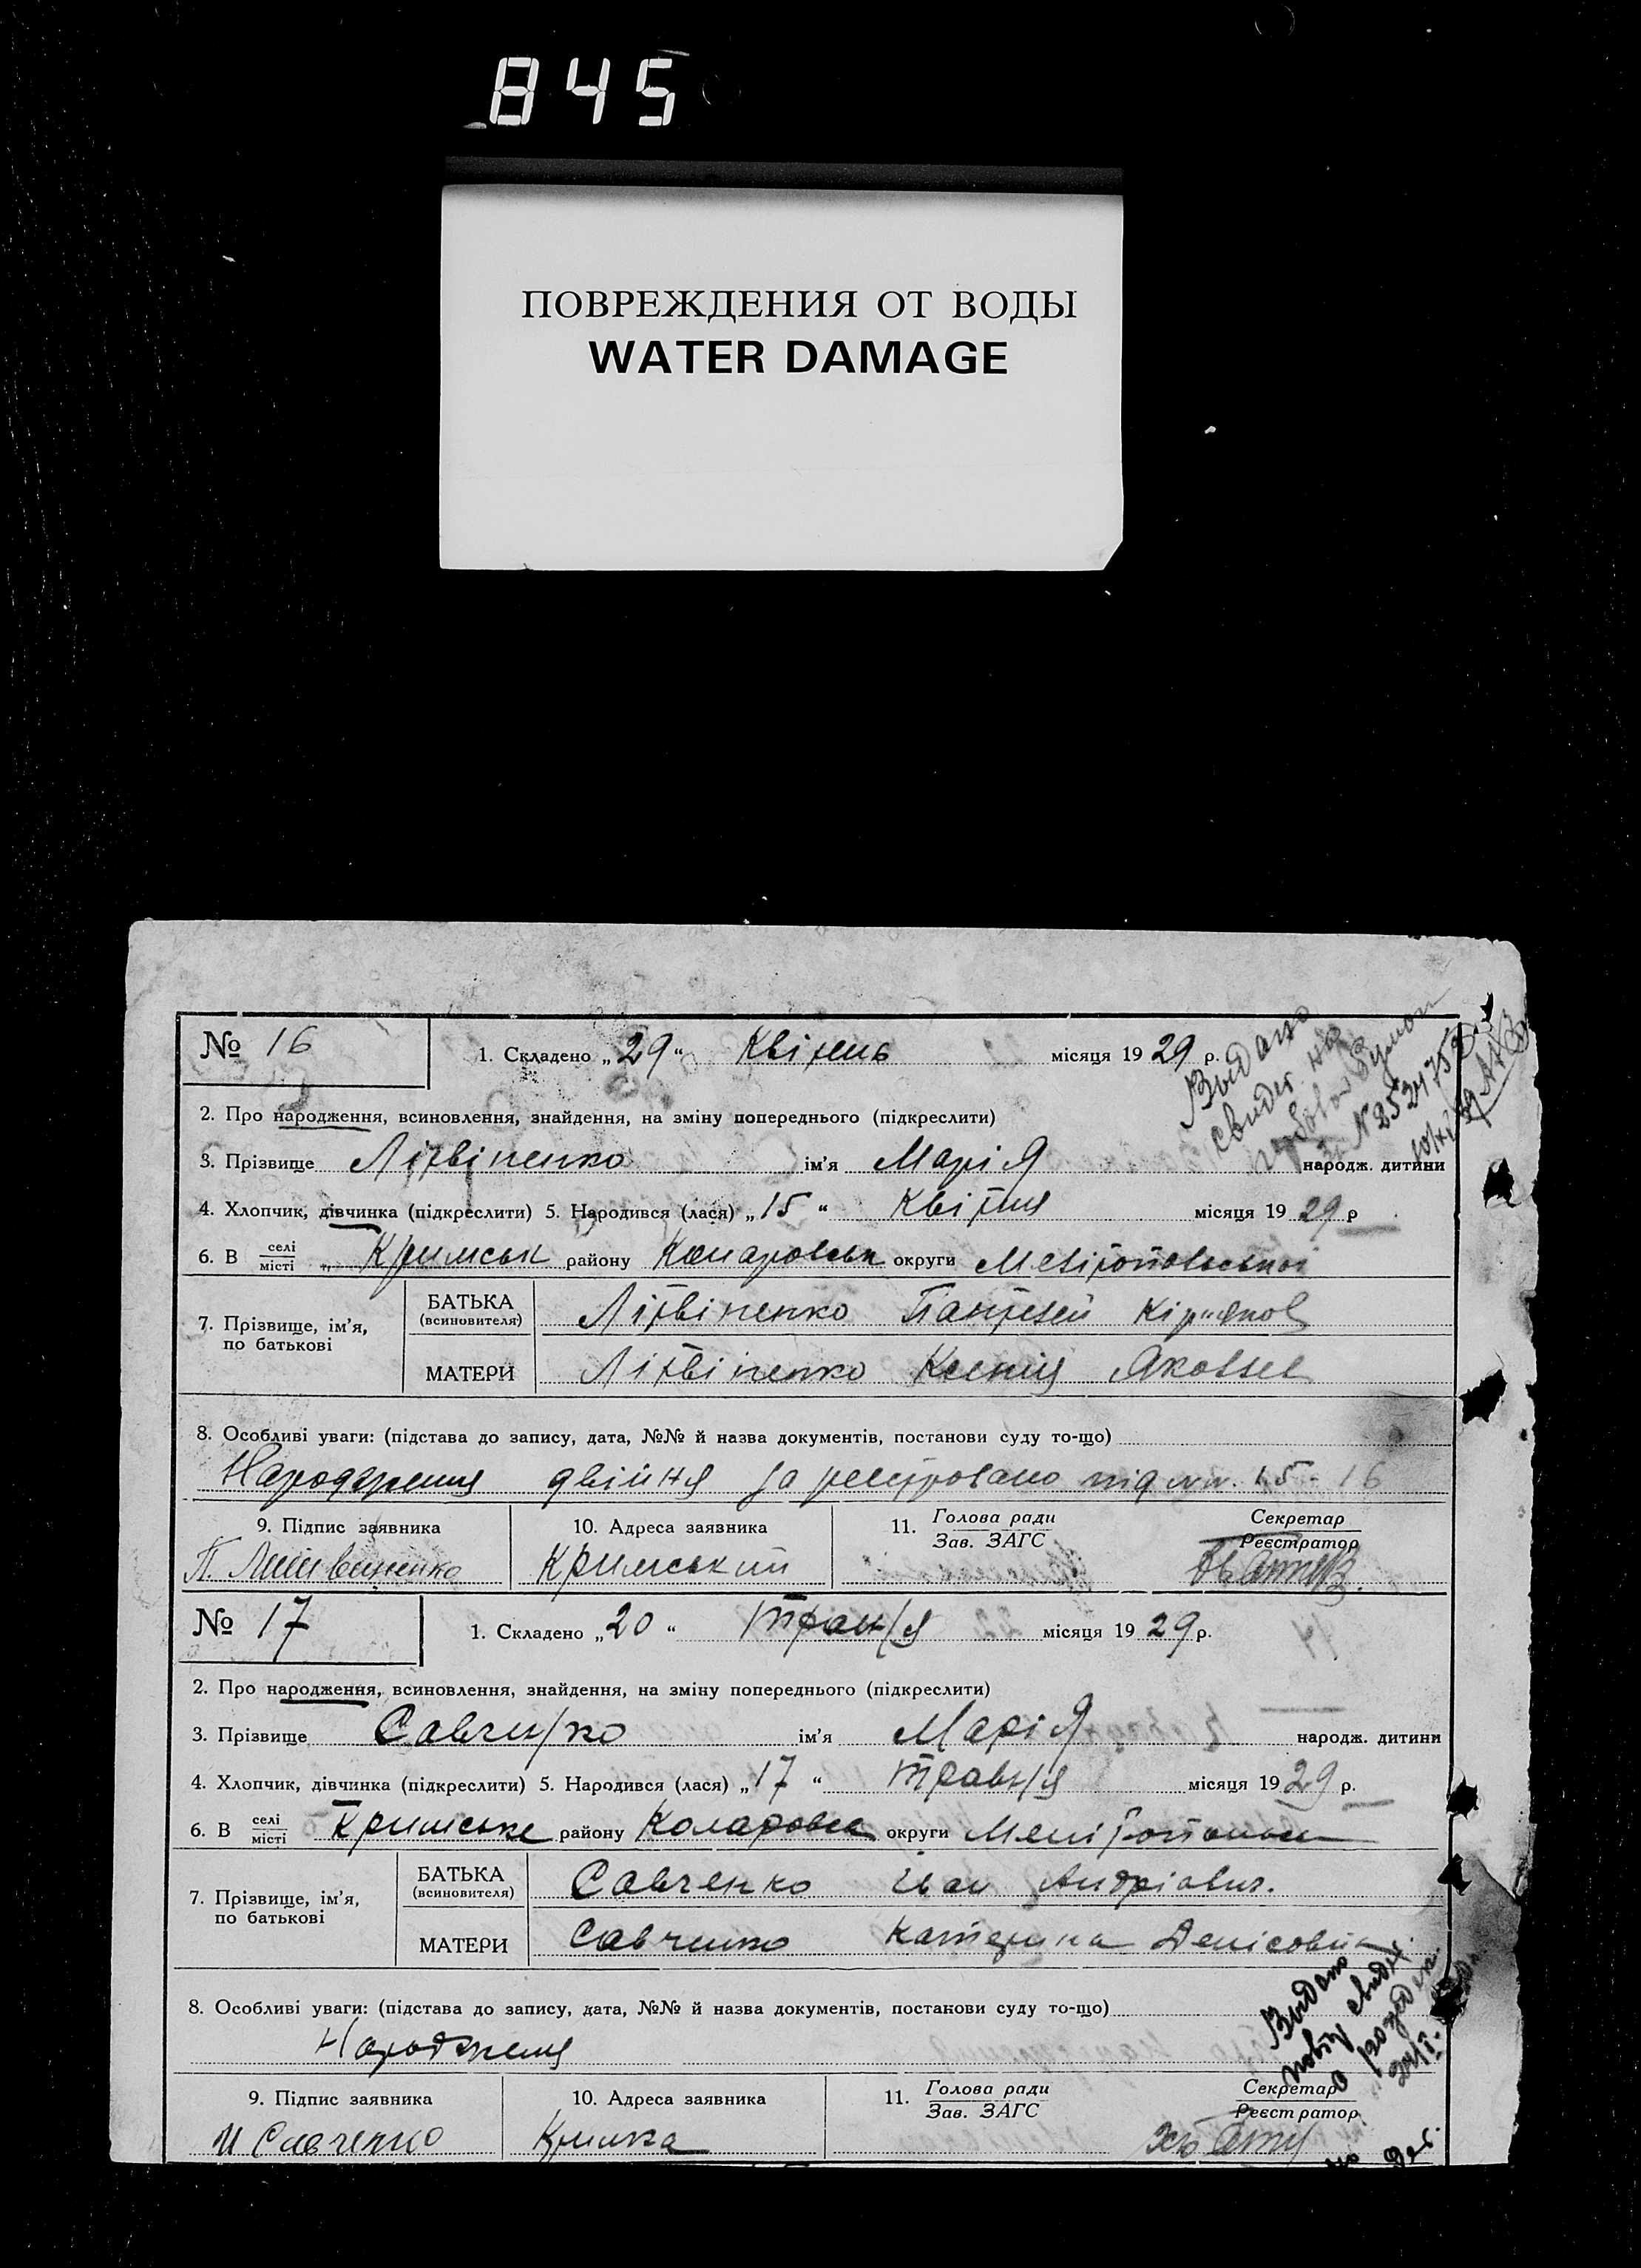 845
ПОВРЕЖДЕНИЯ ОТ ВОДЫ
WATER DAMAGE
№ 16
1. Складено „29“ Квітень місяця 1929 р.
Выдано
свидет. на
N 252475
2. Про народження, всиновлення, знайдення, на зміну попереднього (підкреслити)
3. Прізвище Літвіненко ім'я Марія народж. дитини
4. Хлопчик, дівчинка (підкреслити) 5. Народився (лася) „15“ Квітня місяця 1929 р
6. В селі місті Кримськ району округи
7. Прізвище, ім'я, по батькові
БАТЬКА (всиновителя) Літвіненко Пантелей
МАТЕРИ Літвіненко Ксенія Яковлев
8. Особливі уваги: (підстава до запису, дата, №№ й назва документів, постанови суду то-що)
Народження двійня зареєстровано під 15-16
9. Підпис заявника
10. Адреса заявника
11. Голова ради Зав. ЗАГС
Секретар Реєстратор
П. Литвиненко Кримський
№ 17
1. Складено „20“ Травня місяця 1929 р.
2. Про народження, всиновлення, знайдення, на зміну попереднього (підкреслити)
3. Прізвище Савченко ім'я Марія народж. дитини
4. Хлопчик, дівчинка (підкреслити) 5. Народився (лася) „17“ Травня місяця 1929 р.
6. В селі місті Кримське району округи
7. Прізвище, ім'я, по батькові
БАТЬКА (всиновителя) Савченко Іван Андріавич.
МАТЕРИ Савченко Катерина Денісовна
8. Особливі уваги: (підстава до запису, дата, №№ й назва документів, постанови суду то-що)
Народження
Выдано
повтор свидет.
о рожден.
9. Підпис заявника
10. Адреса заявника
11. Голова ради Зав. ЗАГС
Секретар Реєстратор
И Савченко